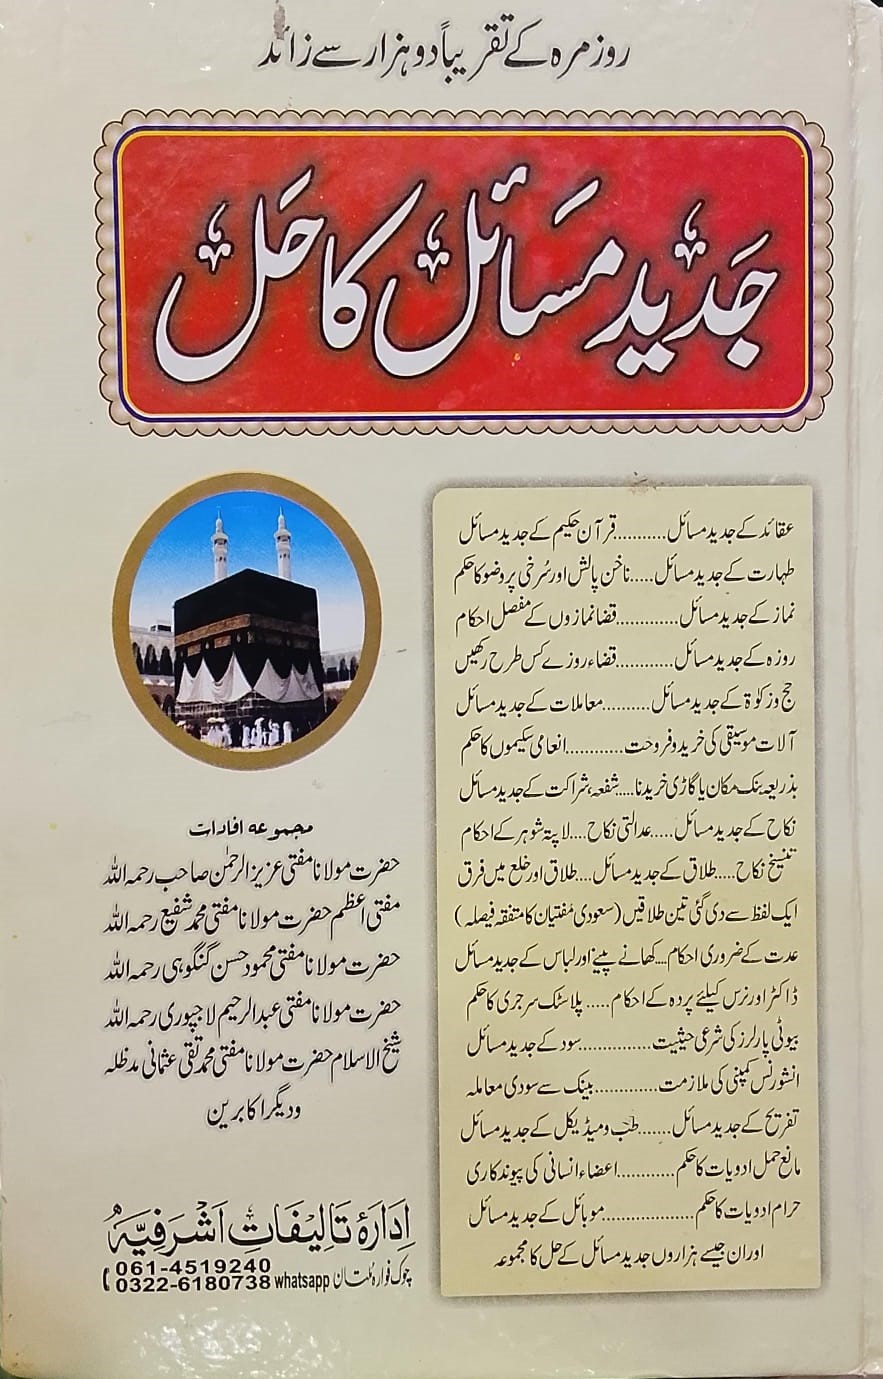 روزمرہ کے تقریباً دو ہزار سے زائد
جدید مسائل کا حل
عقائد کے جدید مسائل...........قرآن حکیم کے جدید مسائل
طہارت کے جدید مسائل.....ناخن پالش اور سُرخی پر وضو کا حکم
نماز کے جدید مسائل.............قضا نمازوں کے مفصل احکام
روزہ کے جدید مسائل............قضاء روزے کس طرح رکھیں
حج وزکوٰۃ کے جدید مسائل..........معاملات کے جدید مسائل
آلات موسیقی کی خرید و فروخت............انعامی سکیموں کا حکم
بذریعہ بنک مکان یا گاڑی خریدنا....شفعہ، شراکت کے جدید مسائل
نکاح کے جدید مسائل.....عدالتی نکاح....لاپتہ شوہر کے احکام
تنسیخ نکاح.....طلاق کے جدید مسائل....طلاق اور خلع میں فرق
ایک لفظ سے دی گئی تین طلاقیں (سعودی مفتیان کا متفقہ فیصلہ)
عدت کے ضروری احکام....کھانے پینے اور لباس کے جدید مسائل
ڈاکٹر اور نرس کیلئے پردہ کے احکام.....پلاسٹک سرجری کا حکم
بیوٹی پارلرز کی شرعی حیثیت...............سود کے جدید مسائل
انشورنس کمپنی کی ملازمت.............بینک سے سودی معاملہ
تفریح کے جدید مسائل.......طب و میڈیکل کے جدید مسائل
مانع حمل ادویات کا حکم............اعضاء انسانی کی پیوندکاری
حرام ادویات کا حکم...................موبائل کے جدید مسائل
اور ان جیسے ہزاروں جدید مسائل کے حل کا مجموعہ
مجموعہ افادات
حضرت مولانا مفتی عزیز الرحمٰن صاحب رحمہ اللہ
مفتی اعظم حضرت مولانا مفتی محمد شفیع رحمہ اللہ
حضرت مولانا مفتی محمود حسن گنگوہی رحمہ اللہ
حضرت مولانا مفتی عبد الرحیم لاجپوری رحمہ اللہ
شیخ الاسلام حضرت مولانا مفتی محمد تقی عثمانی مدظلہ
ودیگر اکابرین
اِدَارَۂ تَالِیْفَاتِ اَشْرَفِیَّہ
چوک فوارہ ملتان
061-4519240
0322-6180738 whatsapp